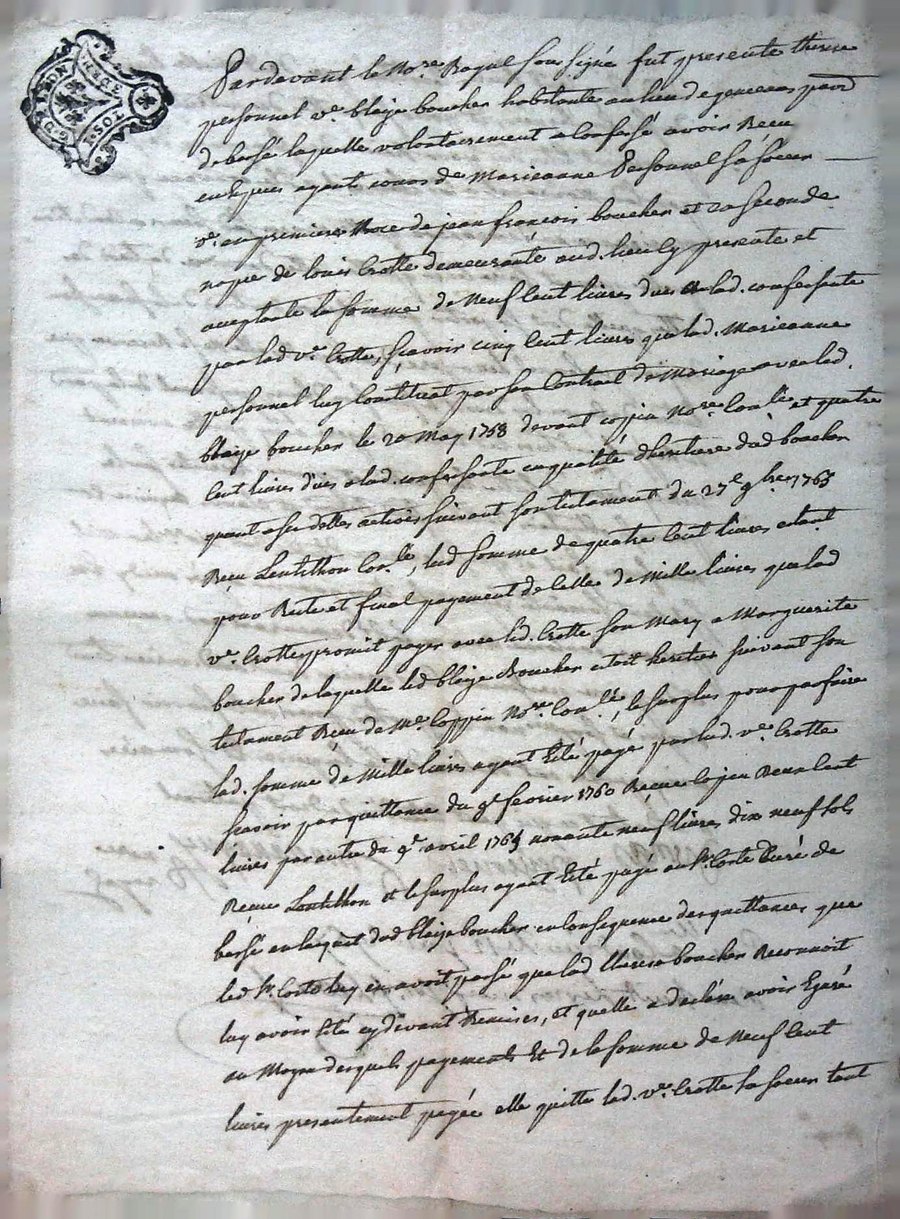 G. DE LYON
DEUX
SOLS
Pardevant le No.re Royal soussigné fut presente therese
personnel v.e blaize boucher habitante au lieu de paroisse
de bessé laquelle volontairement a confessé avoir Receu
en especes ayant cours de Marieanne Personnel sa soeur
v.e en premieres Noce de jean françois boucher et en seconde
nopce de louis Crotte demeurante aud. lieu Cy presente et
acceptante la somme de Neuf Cent livres dues a lad. confessante
par lad v.e Crotte, scavoir cinq Cent livres que lad. Marieanne
personnel luy Constitua par son Contrait de Mariage avec led.
blaize boucher le 20 May 1758 devant coppin No.re Con.le et quatre
Cent livres dues a lad. confessante en qualité d'heritiere dud boucher
quant a ses dettes actives suivant son testament du 27.e 9bre 1763
Receu Lentillon Con.le, lad somme de quatre Cent livres etant
pour Reste et final payement de Celle de Mille livres que lad
v.e Crotte promit payer avec led. Crotte son Mary a Marguerite
boucher de laquelle led blaize Boucher etoit heritier suivant son
testament Receu de M.e Coppin No.re Con.le, le surplus pour parfaire
lad. somme de Mille livres ayant Eté payé par lad. v.e Crotte
scavoir par quittance du 9.e fevrier 1760 Receue Coppin Deux Cent
livres par autre du 9.e avril 1764 nonante neuf livres dix neuf sols
Receue Lentillon et le surplus ayant Eté payé au S.r Coste Curé de
bessé en lacquit dud blaize boucher en Consequence des quittances que
led S.r Coste luy en avoit passé que lad therese boucher Reconnoit
luy avoir Eté cy devant Remises, et quelle a declaré avoir Egaré
au Moyen desquels payements Et de la somme de Neuf Cent
livres presentement payée elle quitte lad. v.e Crotte sa soeur tant